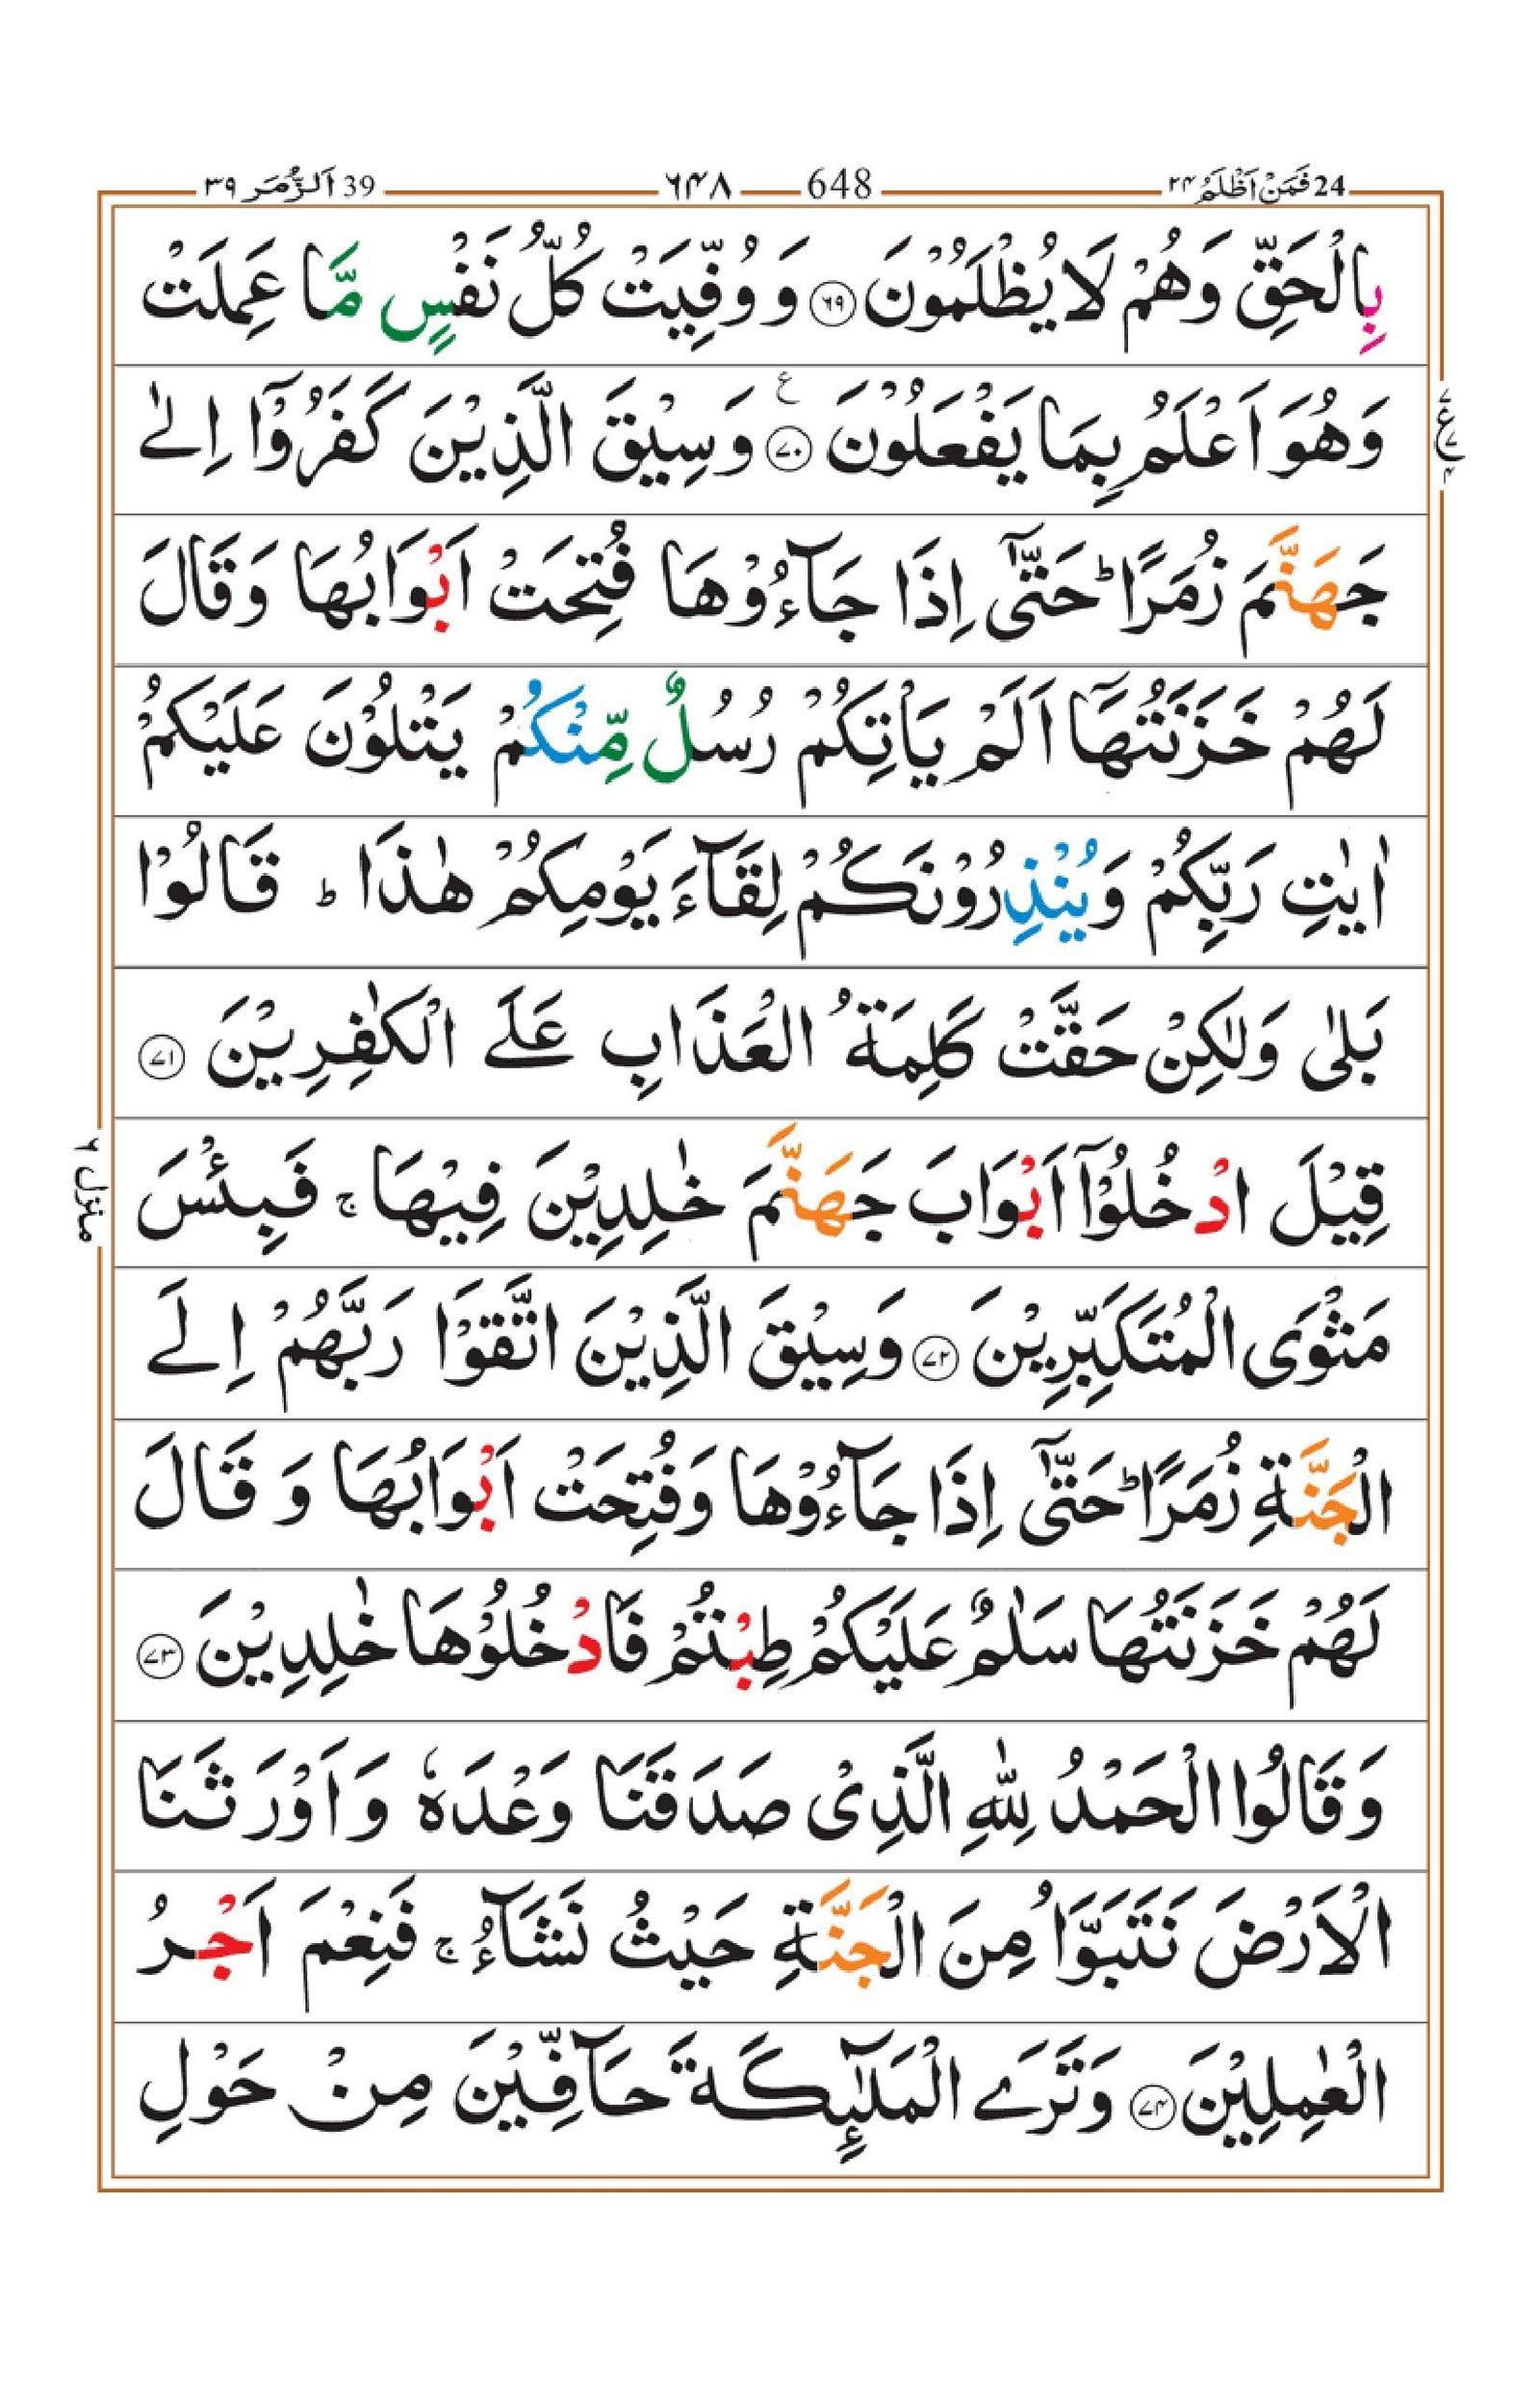 24 فَمَنْ اَظْلَمُ ٢٤
648 ٦٤٨
39 اَلزُّمَر ٣٩
بِالْحَقِّ وَهُمْ لَا يُظْلَمُوْنَ ﴿٦٩﴾ وَ وُفِّيَتْ كُلُّ نَفْسٍ مَّا عَمِلَتْ
وَهُوَ اَعْلَمُ بِمَا يَفْعَلُوْنَ ﴿٧٠﴾ ع وَسِيْقَ الَّذِيْنَ كَفَرُوْۤا اِلٰى
جَهَنَّمَ زُمَرًا ؕ حَتّٰۤى اِذَا جَآءُوْهَا فُتِحَتْ اَبْوَابُهَا وَقَالَ
لَهُمْ خَزَنَتُهَاۤ اَلَمْ يَاْتِكُمْ رُسُلٌ مِّنْكُمْ يَتْلُوْنَ عَلَيْكُمْ
اٰيٰتِ رَبِّكُمْ وَيُنْذِرُوْنَكُمْ لِقَآءَ يَوْمِكُمْ هٰذَا ؕ قَالُوْا
بَلٰى وَلٰكِنْ حَقَّتْ كَلِمَةُ الْعَذَابِ عَلَى الْكٰفِرِيْنَ ﴿٧١﴾
قِيْلَ ادْخُلُوْۤا اَبْوَابَ جَهَنَّمَ خٰلِدِيْنَ فِيْهَا ۚ فَبِئْسَ
مَثْوَى الْمُتَكَبِّرِيْنَ ﴿٧٢﴾ وَسِيْقَ الَّذِيْنَ اتَّقَوْا رَبَّهُمْ اِلَى
الْجَنَّةِ زُمَرًا ؕ حَتّٰۤى اِذَا جَآءُوْهَا وَفُتِحَتْ اَبْوَابُهَا وَ قَالَ
لَهُمْ خَزَنَتُهَا سَلٰمٌ عَلَيْكُمْ طِبْتُمْ فَادْخُلُوْهَا خٰلِدِيْنَ ﴿٧٣﴾
وَقَالُوا الْحَمْدُ لِلّٰهِ الَّذِىْ صَدَقَنَا وَعْدَهٗ وَاَوْرَثَنَا
الْاَرْضَ نَتَبَوَّاُ مِنَ الْجَنَّةِ حَيْثُ نَشَآءُ ۚ فَنِعْمَ اَجْرُ
الْعٰمِلِيْنَ ﴿٧٤﴾ وَتَرَى الْمَلٰٓئِكَةَ حَآفِّيْنَ مِنْ حَوْلِ
ع ٧ ٧ ٤
منزل ٦